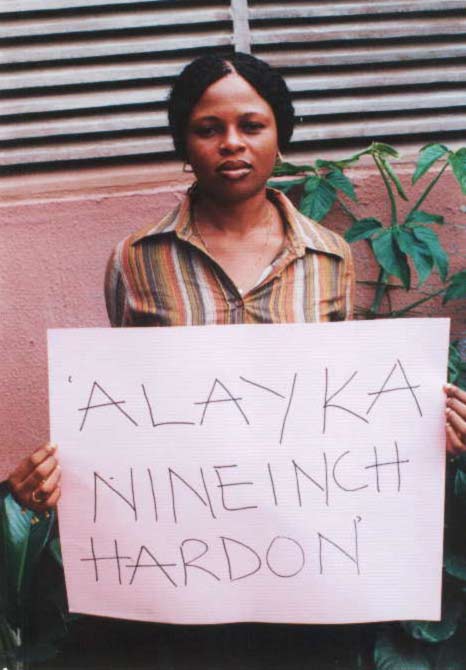 'ALAYKA
NINEINCH
HARDON'